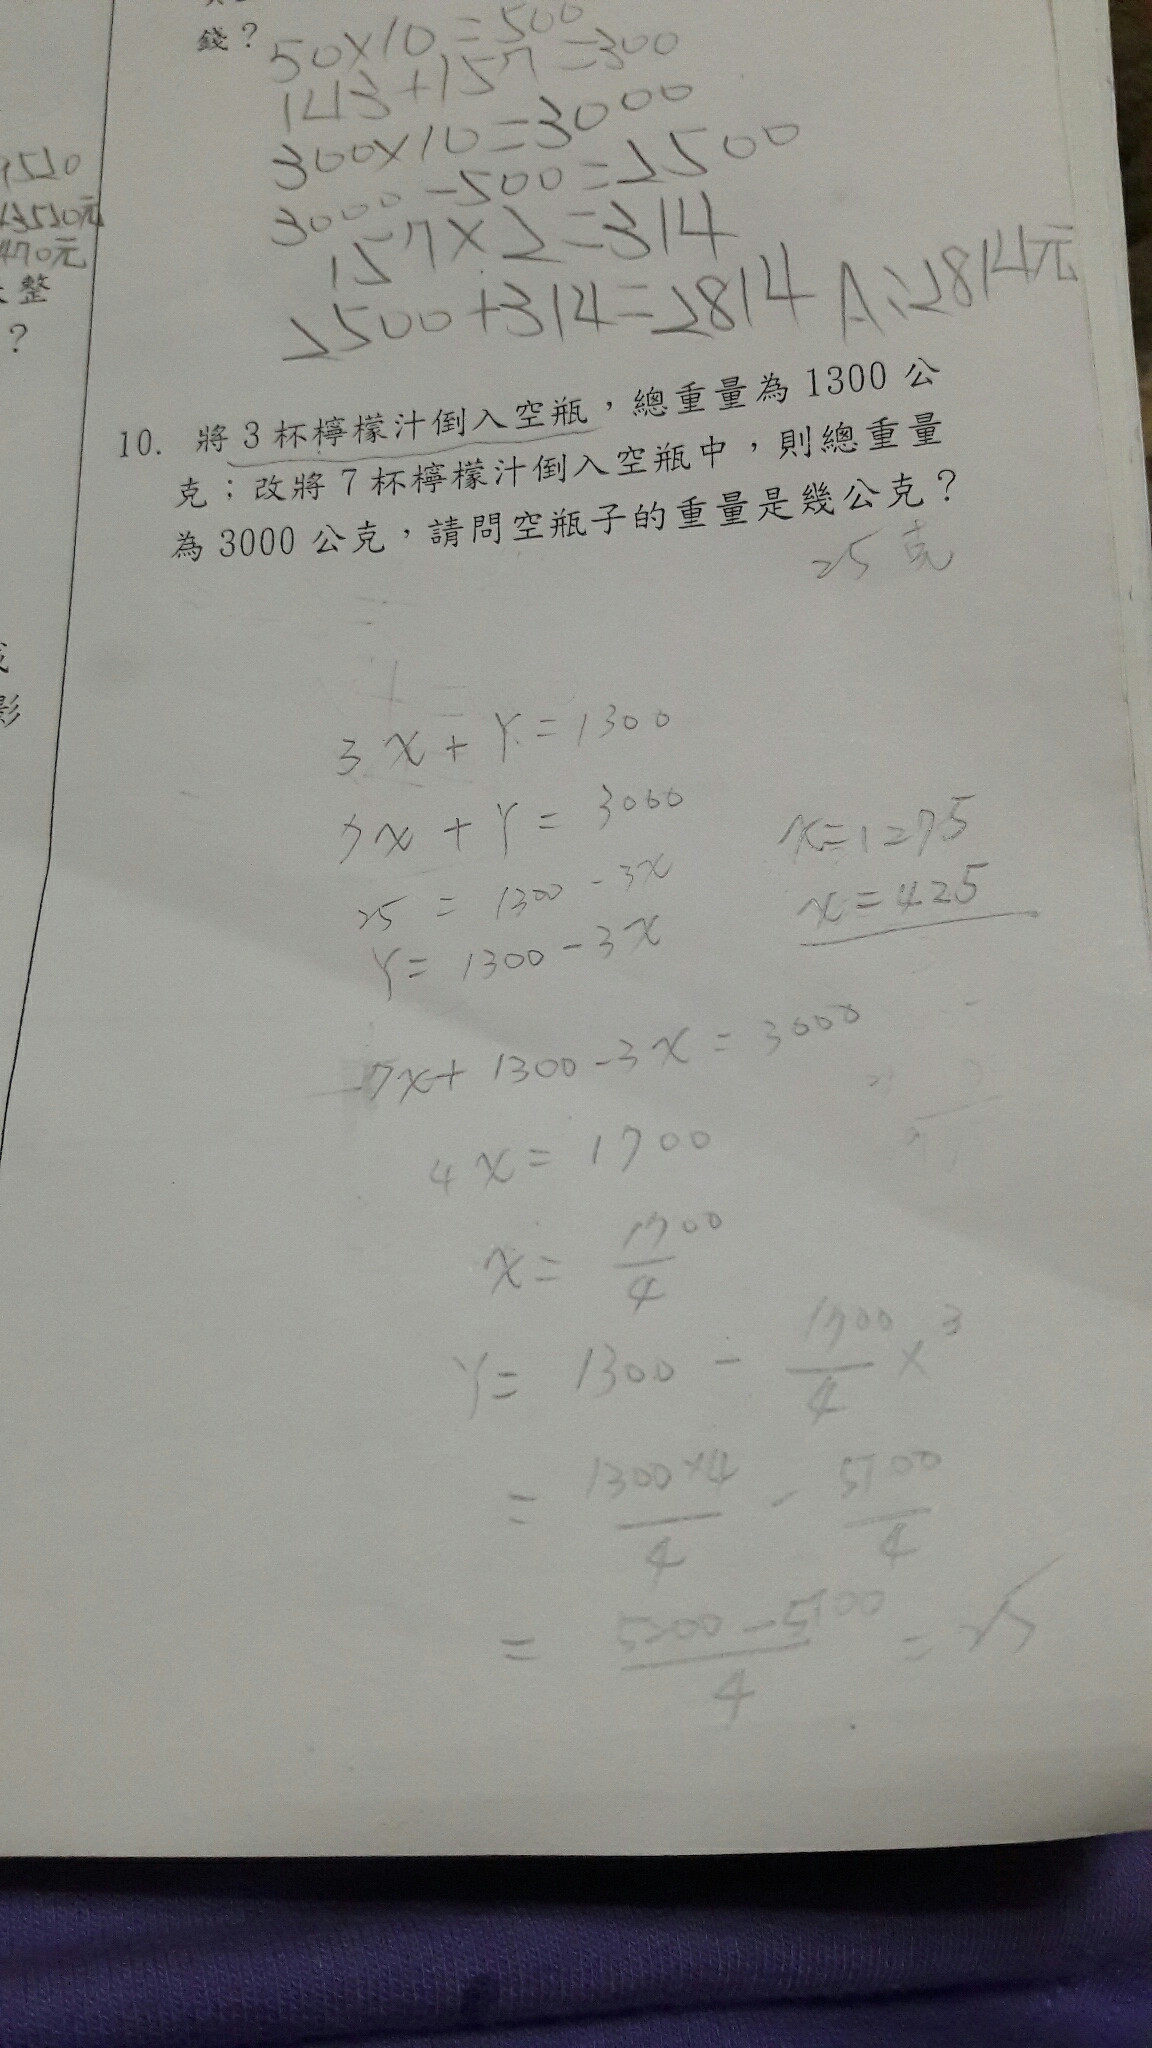 錢？
50×10=500
143+157=300
300×10=3000
3000-500=2500
157×2=314
2500+314=2814 A:2814元
1520
13520元
470元
整
？
影
10. 將3杯檸檬汁倒入空瓶，總重量為1300公
克；改將7杯檸檬汁倒入空瓶中，則總重量
為3000公克，請問空瓶子的重量是幾公克？
25克
3x+Y=1300
7x+Y=3000
25=1300-3x
Y=1300-3x
x=1275
x=425
7x+1300-3x=3000
4x=1700
x=1700/4
Y=1300-1700/4×3
=1300×4/4-5100/4
=5200-5100/4=25